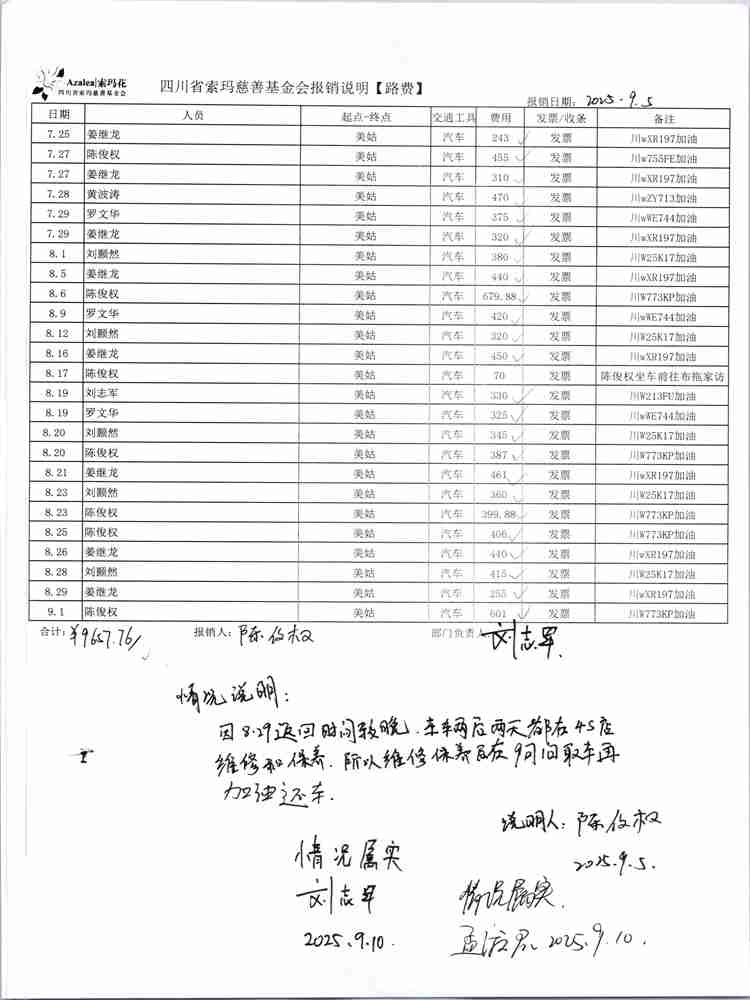 Azalea|索玛花
四川省索玛慈善基金会
四川省索玛慈善基金会报销说明【路费】
报销日期: 2025.9.5
日期 人员 起点-终点 交通工具 费用 发票/收条 备注
7.25 姜继龙 美姑 汽车 243 ✓ 发票 川wXR197加油
7.27 陈俊权 美姑 汽车 455 ✓ 发票 川w755FE加油
7.27 姜继龙 美姑 汽车 310 ✓ 发票 川wXR197加油
7.28 黄波涛 美姑 汽车 470 ✓ 发票 川wZY713加油
7.29 罗文华 美姑 汽车 375 ✓ 发票 川wWE744加油
7.29 姜继龙 美姑 汽车 320 ✓ 发票 川wXR197加油
8.1 刘颢然 美姑 汽车 380 ✓ 发票 川W25K17加油
8.5 姜继龙 美姑 汽车 440 ✓ 发票 川wXR197加油
8.6 陈俊权 美姑 汽车 679.88 ✓ 发票 川W773KP加油
8.9 罗文华 美姑 汽车 420 ✓ 发票 川wWE744加油
8.12 刘颢然 美姑 汽车 320 ✓ 发票 川W25K17加油
8.16 姜继龙 美姑 汽车 450 ✓ 发票 川wXR197加油
8.17 陈俊权 美姑 汽车 70 发票 陈俊权坐车前往布拖家访
8.19 刘志军 美姑 汽车 330 ✓ 发票 川W213FU加油
8.19 罗文华 美姑 汽车 325 ✓ 发票 川wWE744加油
8.20 刘颢然 美姑 汽车 345 ✓ 发票 川W25K17加油
8.20 陈俊权 美姑 汽车 387 ✓ 发票 川W773KP加油
8.21 姜继龙 美姑 汽车 461 ✓ 发票 川wXR197加油
8.23 刘颢然 美姑 汽车 360 ✓ 发票 川W25K17加油
8.23 陈俊权 美姑 汽车 399.88 ✓ 发票 川W773KP加油
8.25 陈俊权 美姑 汽车 406 ✓ 发票 川W773KP加油
8.26 姜继龙 美姑 汽车 440 ✓ 发票 川wXR197加油
8.28 刘颢然 美姑 汽车 415 ✓ 发票 川W25K17加油
8.29 姜继龙 美姑 汽车 255 ✓ 发票 川wXR197加油
9.1 陈俊权 美姑 汽车 601 ✓ 发票 川W773KP加油
合计: ¥9657.76/ ✓ 报销人: 陈俊权 部门负责人 刘志军
情况说明:
因8.29返回时间较晚、车辆后两天都在4S店
维修和保养.所以维修保养后在9月1日取车再
加油还车.
说明人: 陈俊权
2025.9.5.
情况属实
刘志军
2025.9.10.
情况属实.
2025.9.10.